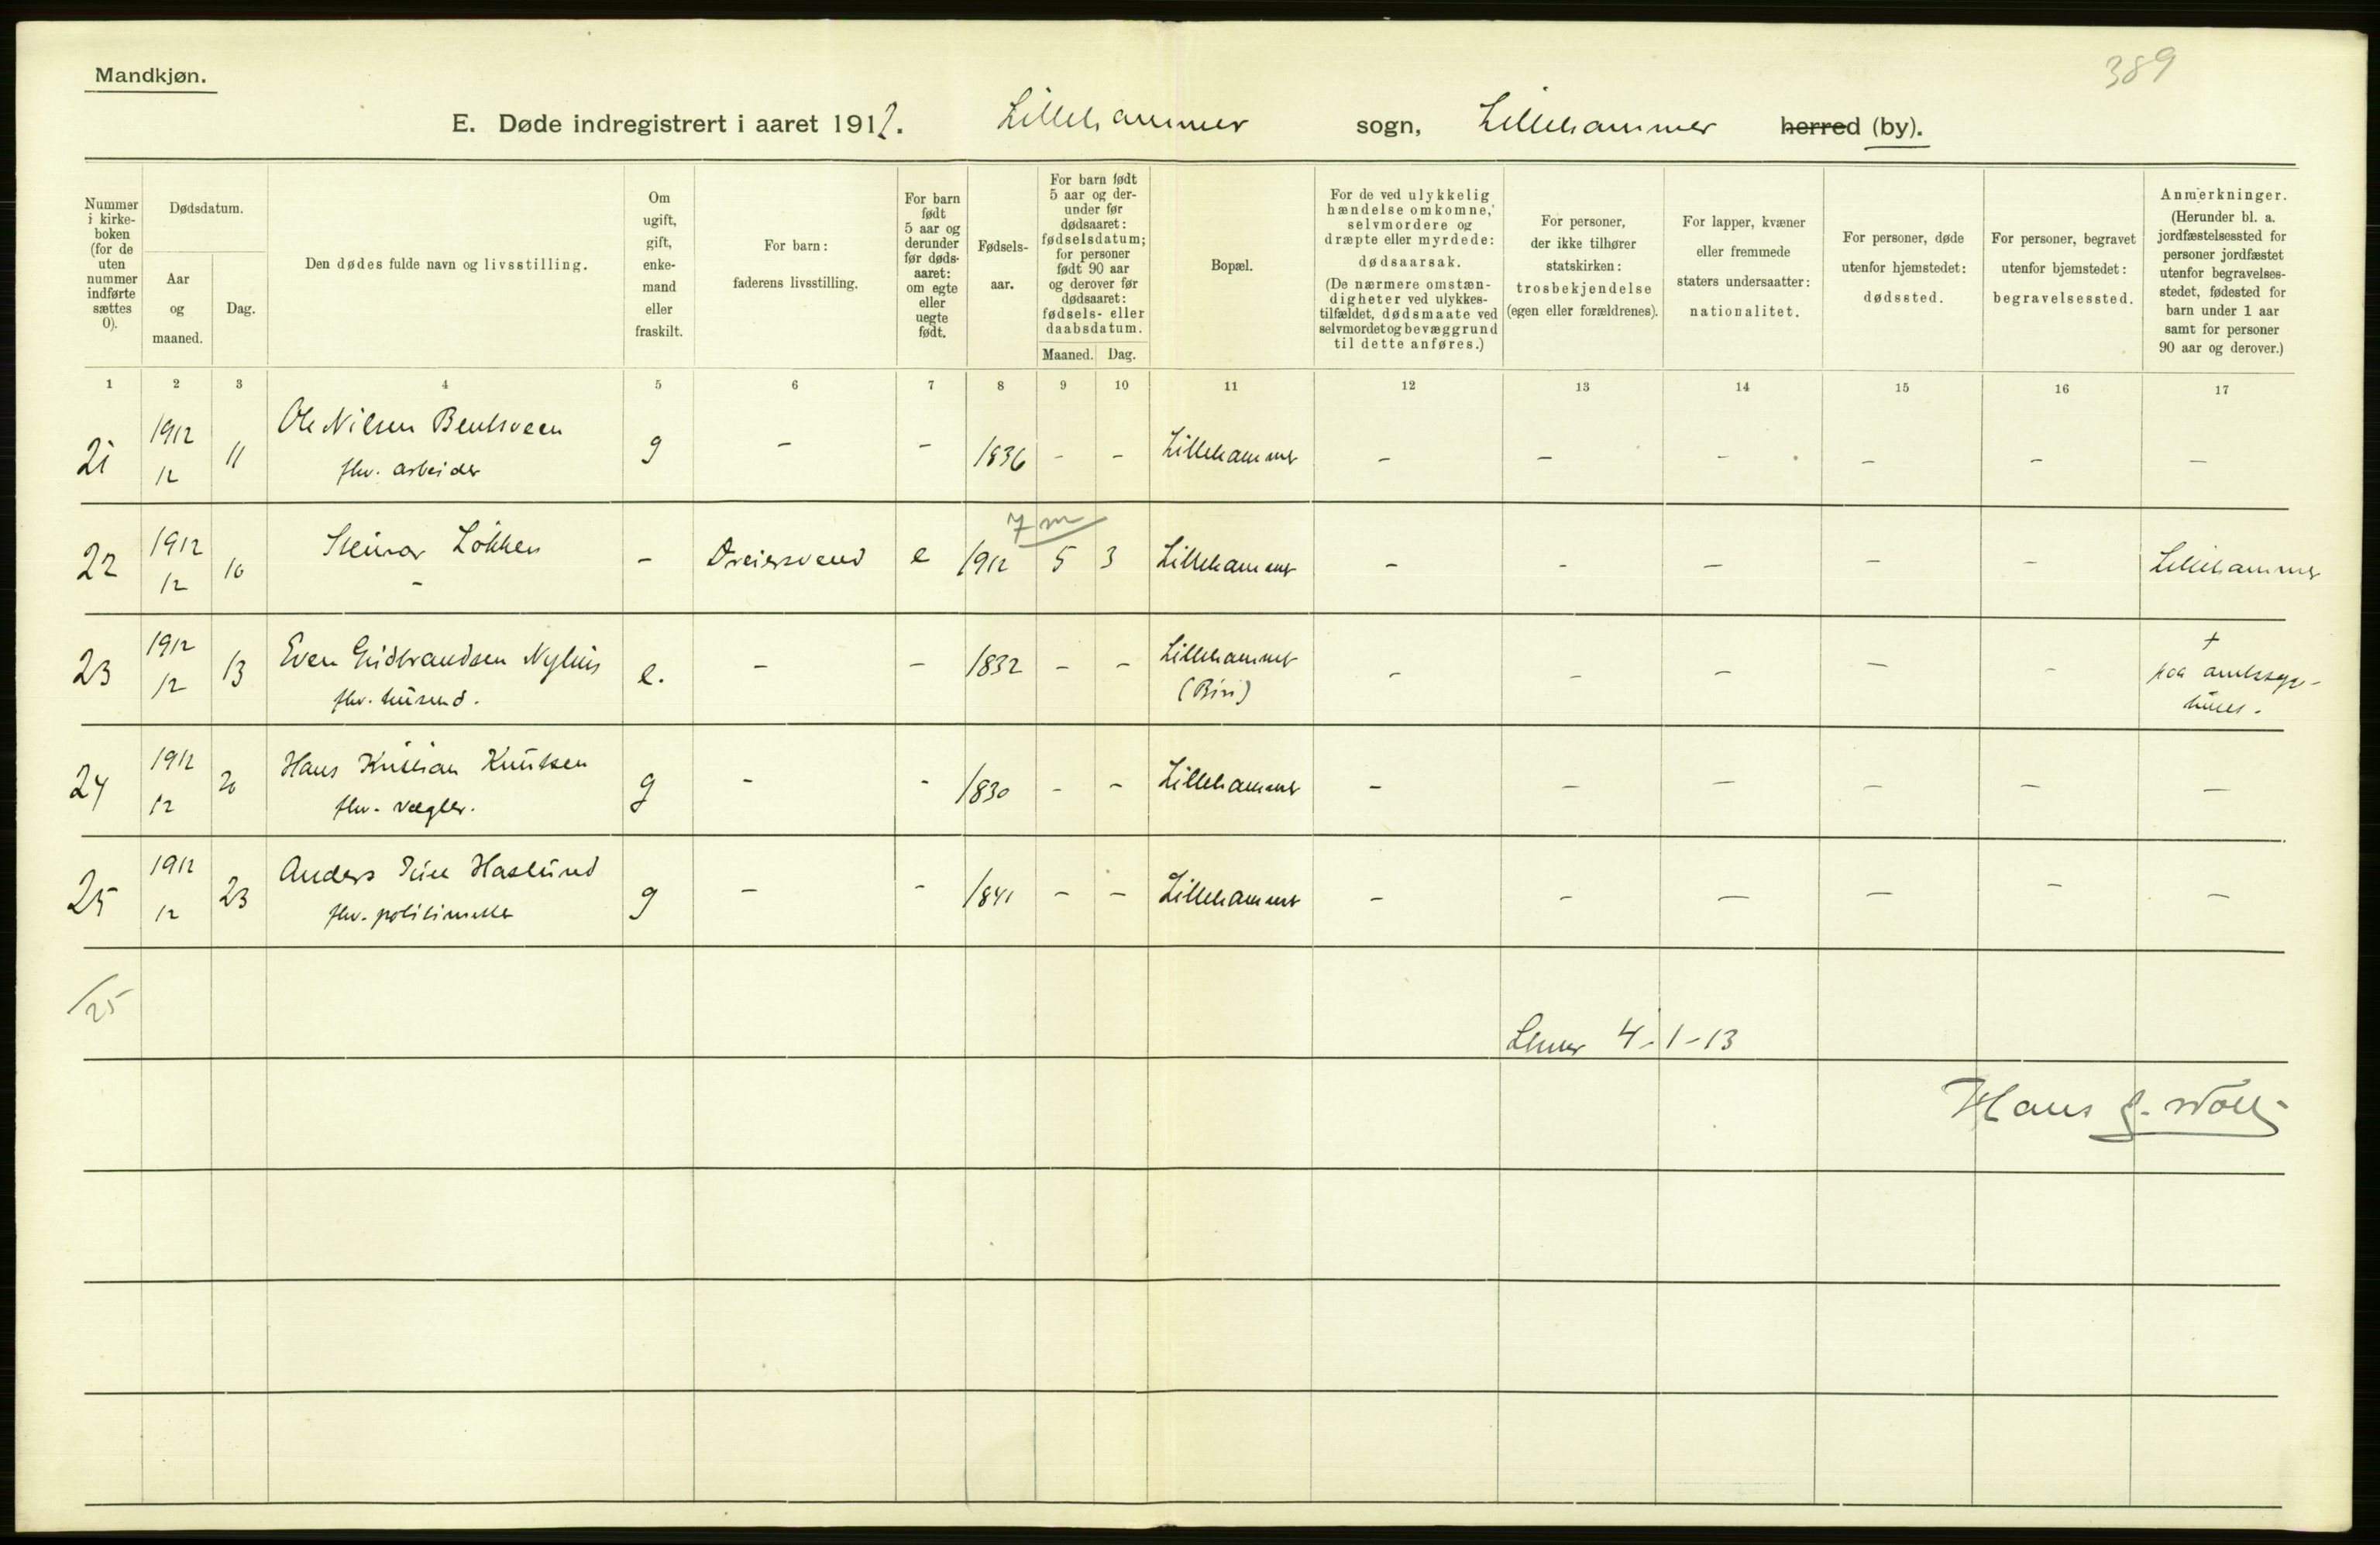 389
Mandkjøn.
E. Døde indregistrert i aaret 1912. Lillehammer sogn, Lillehammer herred (by).
Nummer i kirke-boken (for de uten nummer indførte sættes 0).
Dødsdatum.
Aar og maaned.
Dag.
Den dødes fulde navn og livsstilling.
Om ugift, gift, enke-mand eller fraskilt.
For barn: faderens livsstilling.
For barn født 5 aar og derunder før døds-aaret: om egte eller uegte født.
Fødsels-aar.
For barn født 5 aar og der-under før dødsaaret: fødselsdatum; for personer født 90 aar og derover før dødsaaret: fødsels- eller daabsdatum.
Maaned. Dag.
Bopæl.
For de ved ulykkelig hændelse omkomne, selvmordere og dræpte eller myrdede: dødsaarsak.
(De nærmere omstæn-digheter ved ulykkes-tilfældet, dødsmaate ved selvmordet og bevæggrund til dette anføres.)
For personer, der ikke tilhører statskirken: trosbekjendelse (egen eller forældrenes).
For lapper, kvæner eller fremmede staters undersaatter: nationalitet.
For personer, døde utenfor hjemstedet: dødssted.
For personer, begravet utenfor hjemstedet: begravelsessted.
Anmerkninger.
(Herunder bl. a. jordfæstelsessted for personer jordfæstet utenfor begravelses-stedet, fødested for barn under 1 aar samt for personer 90 aar og derover.)
1 2 3 4 5 6 7 8 9 10 11 12 13 14 15 16 17
21 1912 12 11 Ole Nilsen Bentsveen g - - 1836 - - Lillehammer - - - - - -
fhv. arbeider
7 m
22 1912 12 10 Steinar Løkken - Dreiersvend e 1912 5 3 Lillehammer - - - - - Lillehammer
-
23 1912 12 13 Even Gudbrandsen Nyhus e. - - 1832 - - Lillehammer (Biri) - - - - - + paa amtssyge-huset.
fhv. husmd.
24 1912 12 20 Hans Kristian Knutsen g - - 1830 - - Lillehammer - - - - - -
fhv. vægter.
25 1912 12 23 Anders Haslund g - - 1841 - - Lillehammer - - - - - -
fhv. politimester
/25
Lhmer 4-1-13
Hans J.